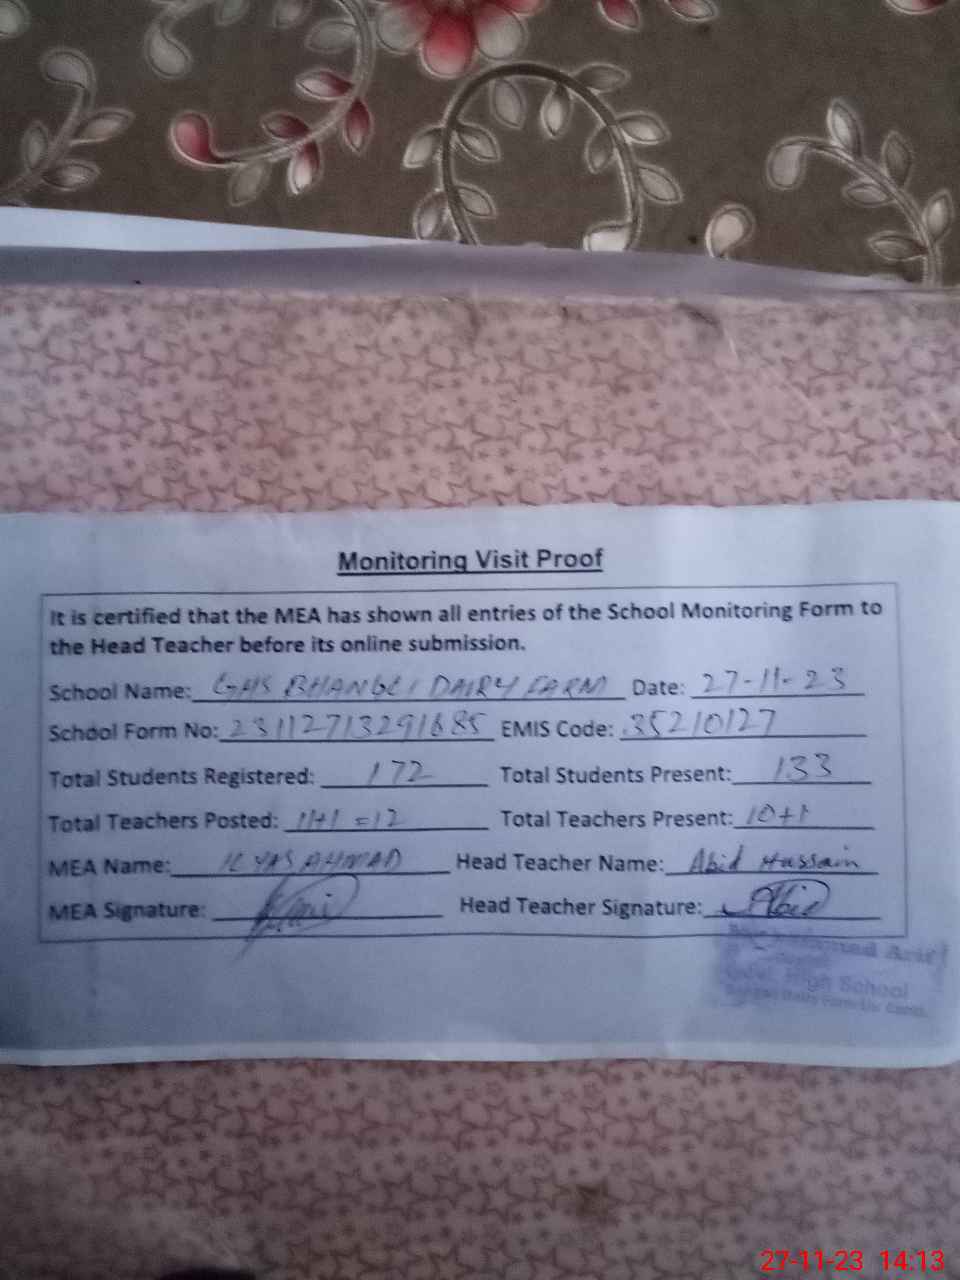 Monitoring Visit Proof
It is certified that the MEA has shown all entries of the School Monitoring Form to
the Head Teacher before its online submission.
School Name: GHS BHANGLI DAIRY FARM Date: 27-11-23
School Form No: 23112713291685 EMIS Code: 35210127
Total Students Registered: 172 Total Students Present: 133
Total Teachers Posted: 11+1 =12 Total Teachers Present: 10+1
MEA Name: ILYAS AHMAD Head Teacher Name: Abid Hussain
MEA Signature: Head Teacher Signature: Abid
Arif
High School
Dairy Farm
27-11-23 14:13